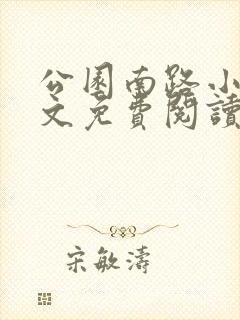 公園南路小
文免費閱讀
宋敏濤